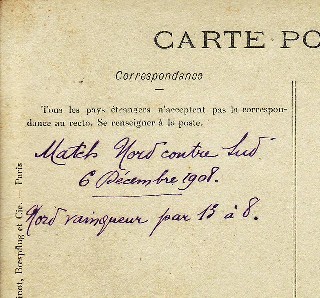 CARTE PO
Correspondance
Tous les pays étrangers n'acceptent pas la correspon-
dance au recto. Se renseigner à la poste.
Match Nord contre Sud.
6 Décembre 1908.
Nord vainqueur par 13 à 8.
inot, Bœspflug et Cie. Paris